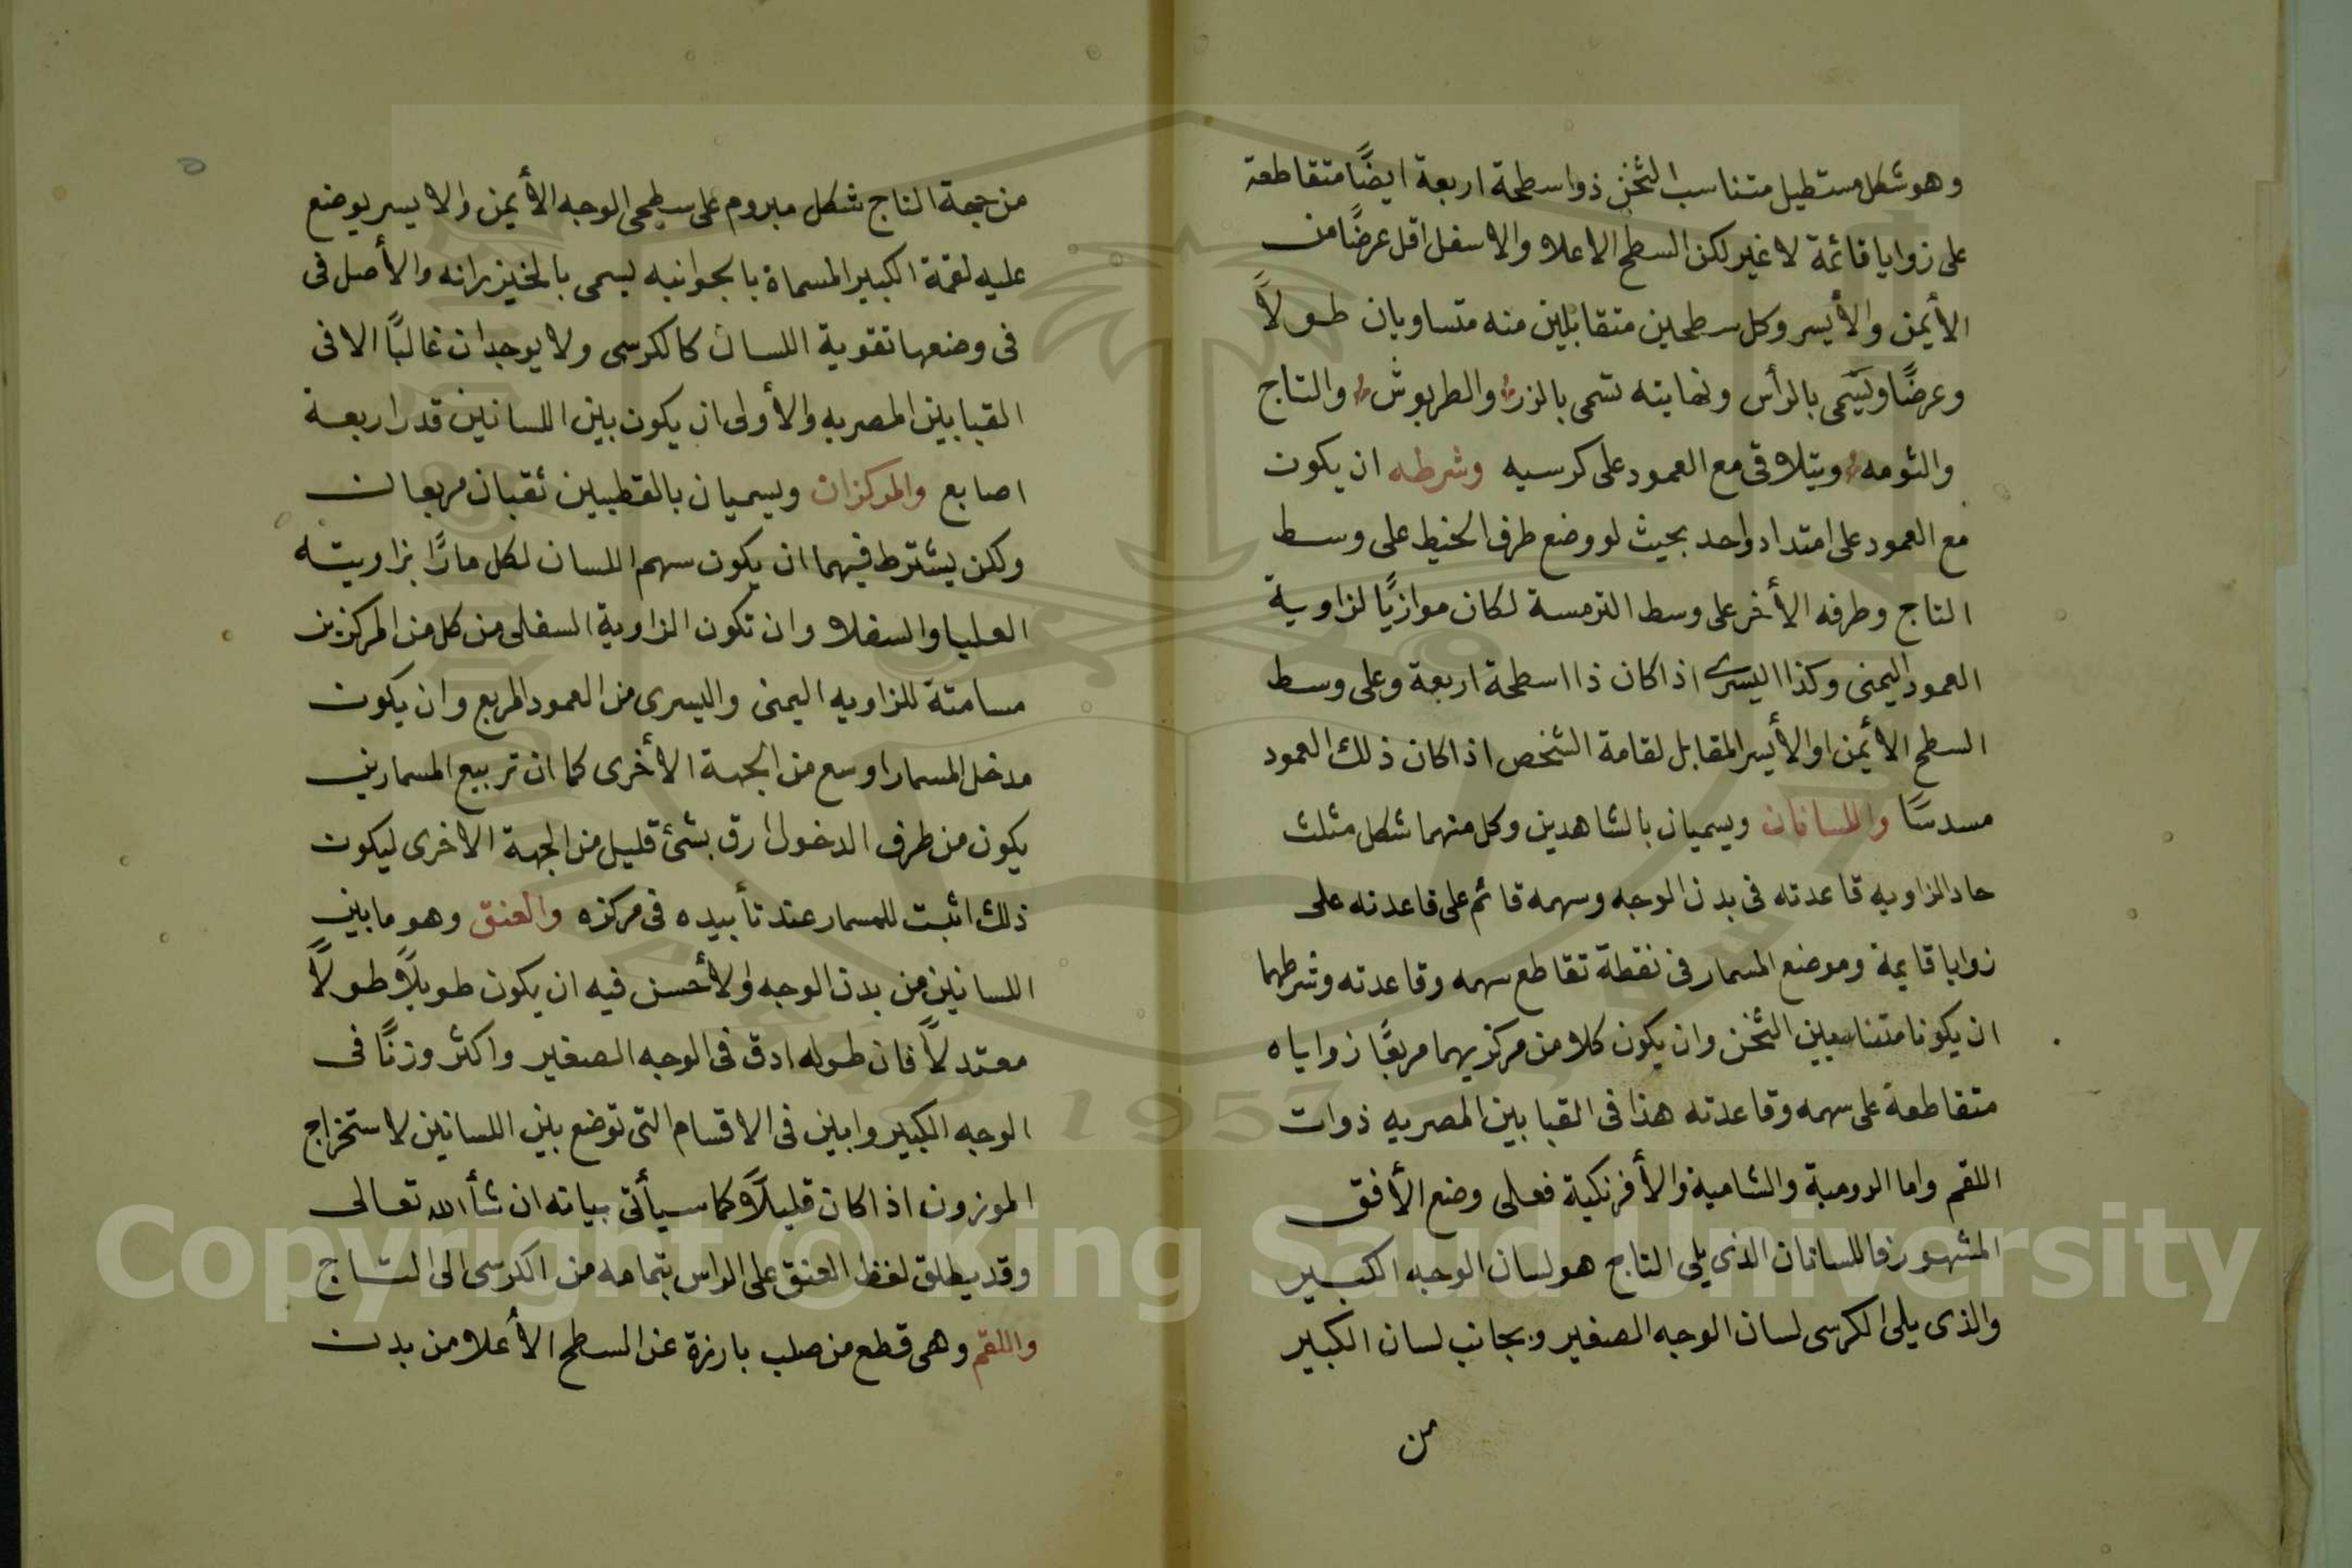 وهو شكل مستطيل متناسب الثخن ذو اسطحة اربعة ايضًا متقاطعة
على زوايا قائمة لا غير لكن السطح الاعلا والاسفل اقل عرضًا من
الأيمن والأيسر وكل سطحين متقابلين منه متساويان طولًا
وعرضًا ويسمى بالرأس ونهايته تسمى بالزر والطربوش والتاج
والثومه ويتلاقى مع العمود على كرسيه وشرطه ان يكون
مع العمود على امتداد واحد بحيث لو وضع طرف الخيط على وسط
التاج وطرفه الأخر على وسط الترمسة لكان موازيًا لزاوية
العمود اليمنى وكذا اليسرى اذا كان ذا اسطحة اربعة وعلى وسط
السطح الأيمن او الأيسر المقابل لقامة الشخص اذا كان ذلك العمود
مسدسًا واللسانان ويسميان بالشاهدين وكل منهما شكل مثلث
حاد الزاويه قاعدته فى بدن الوجه وسهمه قائم على قاعدته على
زوايا قايمة وموضع المسمار فى نقطة تقاطع سهمه وقاعدته وشرطهما
ان يكونا متناسبين الثخن وان يكون كلا من مركزيهما مربعًا زواياه
متقاطعة على سهمه وقاعدته هذا فى القبابين المصريه ذوات
اللقم واما الرومية والشامية والأفرنكية فعلى وضع الأفق
المشهور فاللسانان الذى يلى التاج هو لسان الوجه الكبير
والذى يلى الكرسى لسان الوجه الصغير وبجانب لسان الكبير
من
من جهة التاج شكل مبروم على سطحى الوجه الأيمن والايسر يوضع
عليه لقمة الكبير المسماة بالجوانبه ليسمى بالخيزرانه والأصل فى
فى وضعها تقوية اللسان كالكرسى ولا يوجدان غالبًا الا فى
القبابين المصريه والأولى ان يكون بين اللسانين قدر اربعة
اصابع والمركزان ويسميان بالقطبين ثقبان مربعان
ولكن يشترط فيهما ان يكون سهم اللسان لكل مارًا بزاويته
العليا والسفلا وان تكون الزاوية السفلى من كل من المركزين
مسامتة للزاويه اليمنى واليسرى من العمود المربع وان يكون
مدخل المسمار اوسع من الجهة الأخرى كما ان تربيع المسمارين
يكون من طرف الدخول ارق بشئ قليل من الجهة الاخرى ليكون
ذلك اثبت للمسمار عند تأبيده فى مركزه والعنق وهو مابين
اللسانين من بدن الوجه والأحسن فيه ان يكون طويلًا طولًا
معتدلًا فان طوله ادق فى الوجه الصغير واكثر وزنًا فى
الوجه الكبير وابين فى الاقسام التى توضع بين اللسانين لاستخراج
الموزون اذا كان قليلًا كما سيأتى بيانه ان شأ الله تعالى
وقد يطلق لفظ العنق على الراس بتمامه من الكرسى الى التاج
واللقم وهى قطع من صلب بارزة عن السطح الأعلا من بدن
Copyright © King Saud University
1957